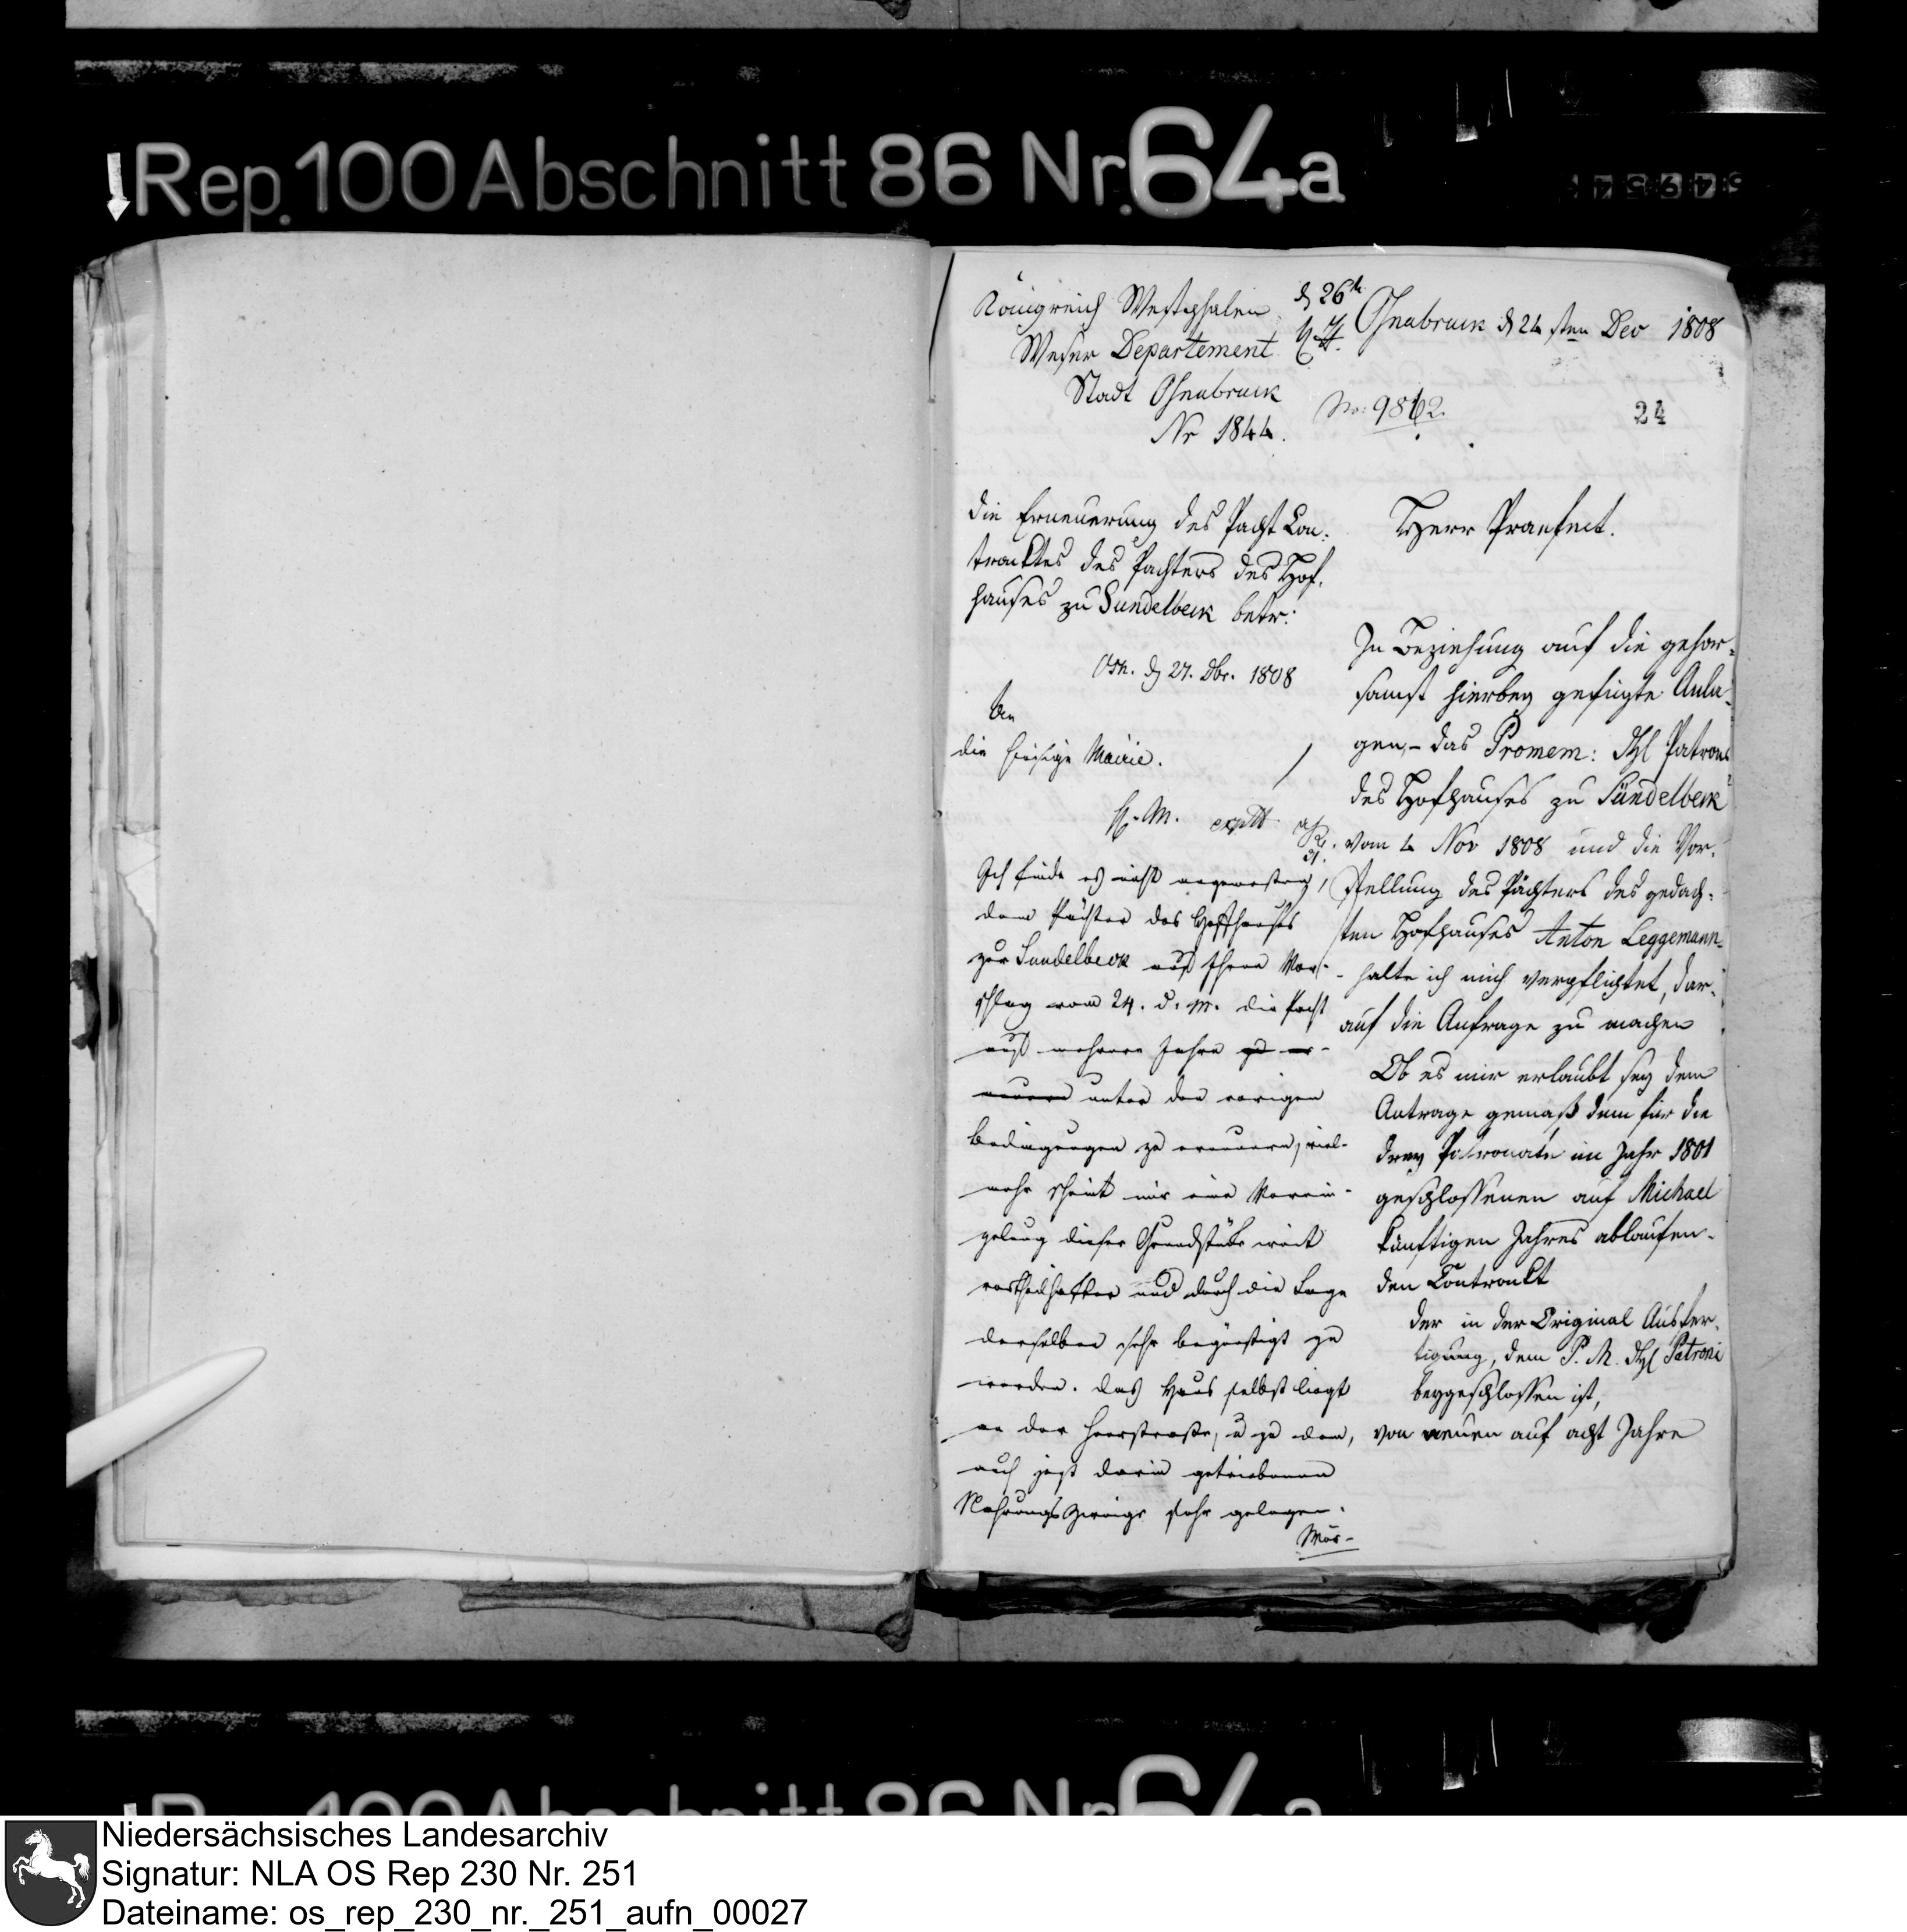 Rep. 100 Abschnitt 86 Nr. 64a
Königreich Westphalen
Weser Departement
Stadt Osnabruck
Nr 1844.
d 26t
Osnabruck d 24 sten Dec 1808
No: 9862.
24
die Erneuerung des Pacht Con-
tracktes des Pachters des Hof-
hauses zu Sundelbeck betr:
Osn. d 27. Dbr. 1808
An
die hiesige Mairie.
Ich finde es nicht angemessen,
dem Pächter des Hoffhauses
zur Sundelbeck nach Ihrem Vor-
schlag vom 24. d. M. die Pacht
auf mehrere Jahre zu er-
neuern unter den vorigen
Bedingungen zu erneuern, viel-
mehr scheint mir eine Verein-
zelung dieser Grundstücke weit
vortheilhafter und durch die Lage
derselben sehr begünstigt zu
werden. Das Haus selbst liegt
an der Heerstraße, u zu dem,
auch jetzt darin getriebenen
Nahrungszweige sehr gelegen.
Wür-
Herr Praefect.
In Beziehung auf die gehor-
samst hierbey gefügte Anla-
gen, – das Promem: Patrons
des Hofhauses zu Sündelbeck
vom 4 Nov 1808 und die Vor-
stellung des Pächters des gedach-
ten Hofhauses Anton Leggemann
– halte ich mich verpflichtet, dar-
auf die Anfrage zu machen
Ob es mir erlaubt sey dem
Antrage gemäß dem für die
drey Patronate im Jahr 1801
geschlossenen auf Michael
künftigen Jahres ablaufen-
den Contrackt
der in der Original Ausfer-
tigung, dem P. M. Patroni
beygeschlossen ist,
von neuen auf acht Jahre
Niedersächsisches Landesarchiv
Signatur: NLA OS Rep 230 Nr. 251
Dateiname: os_rep_230_nr._251_aufn_00027